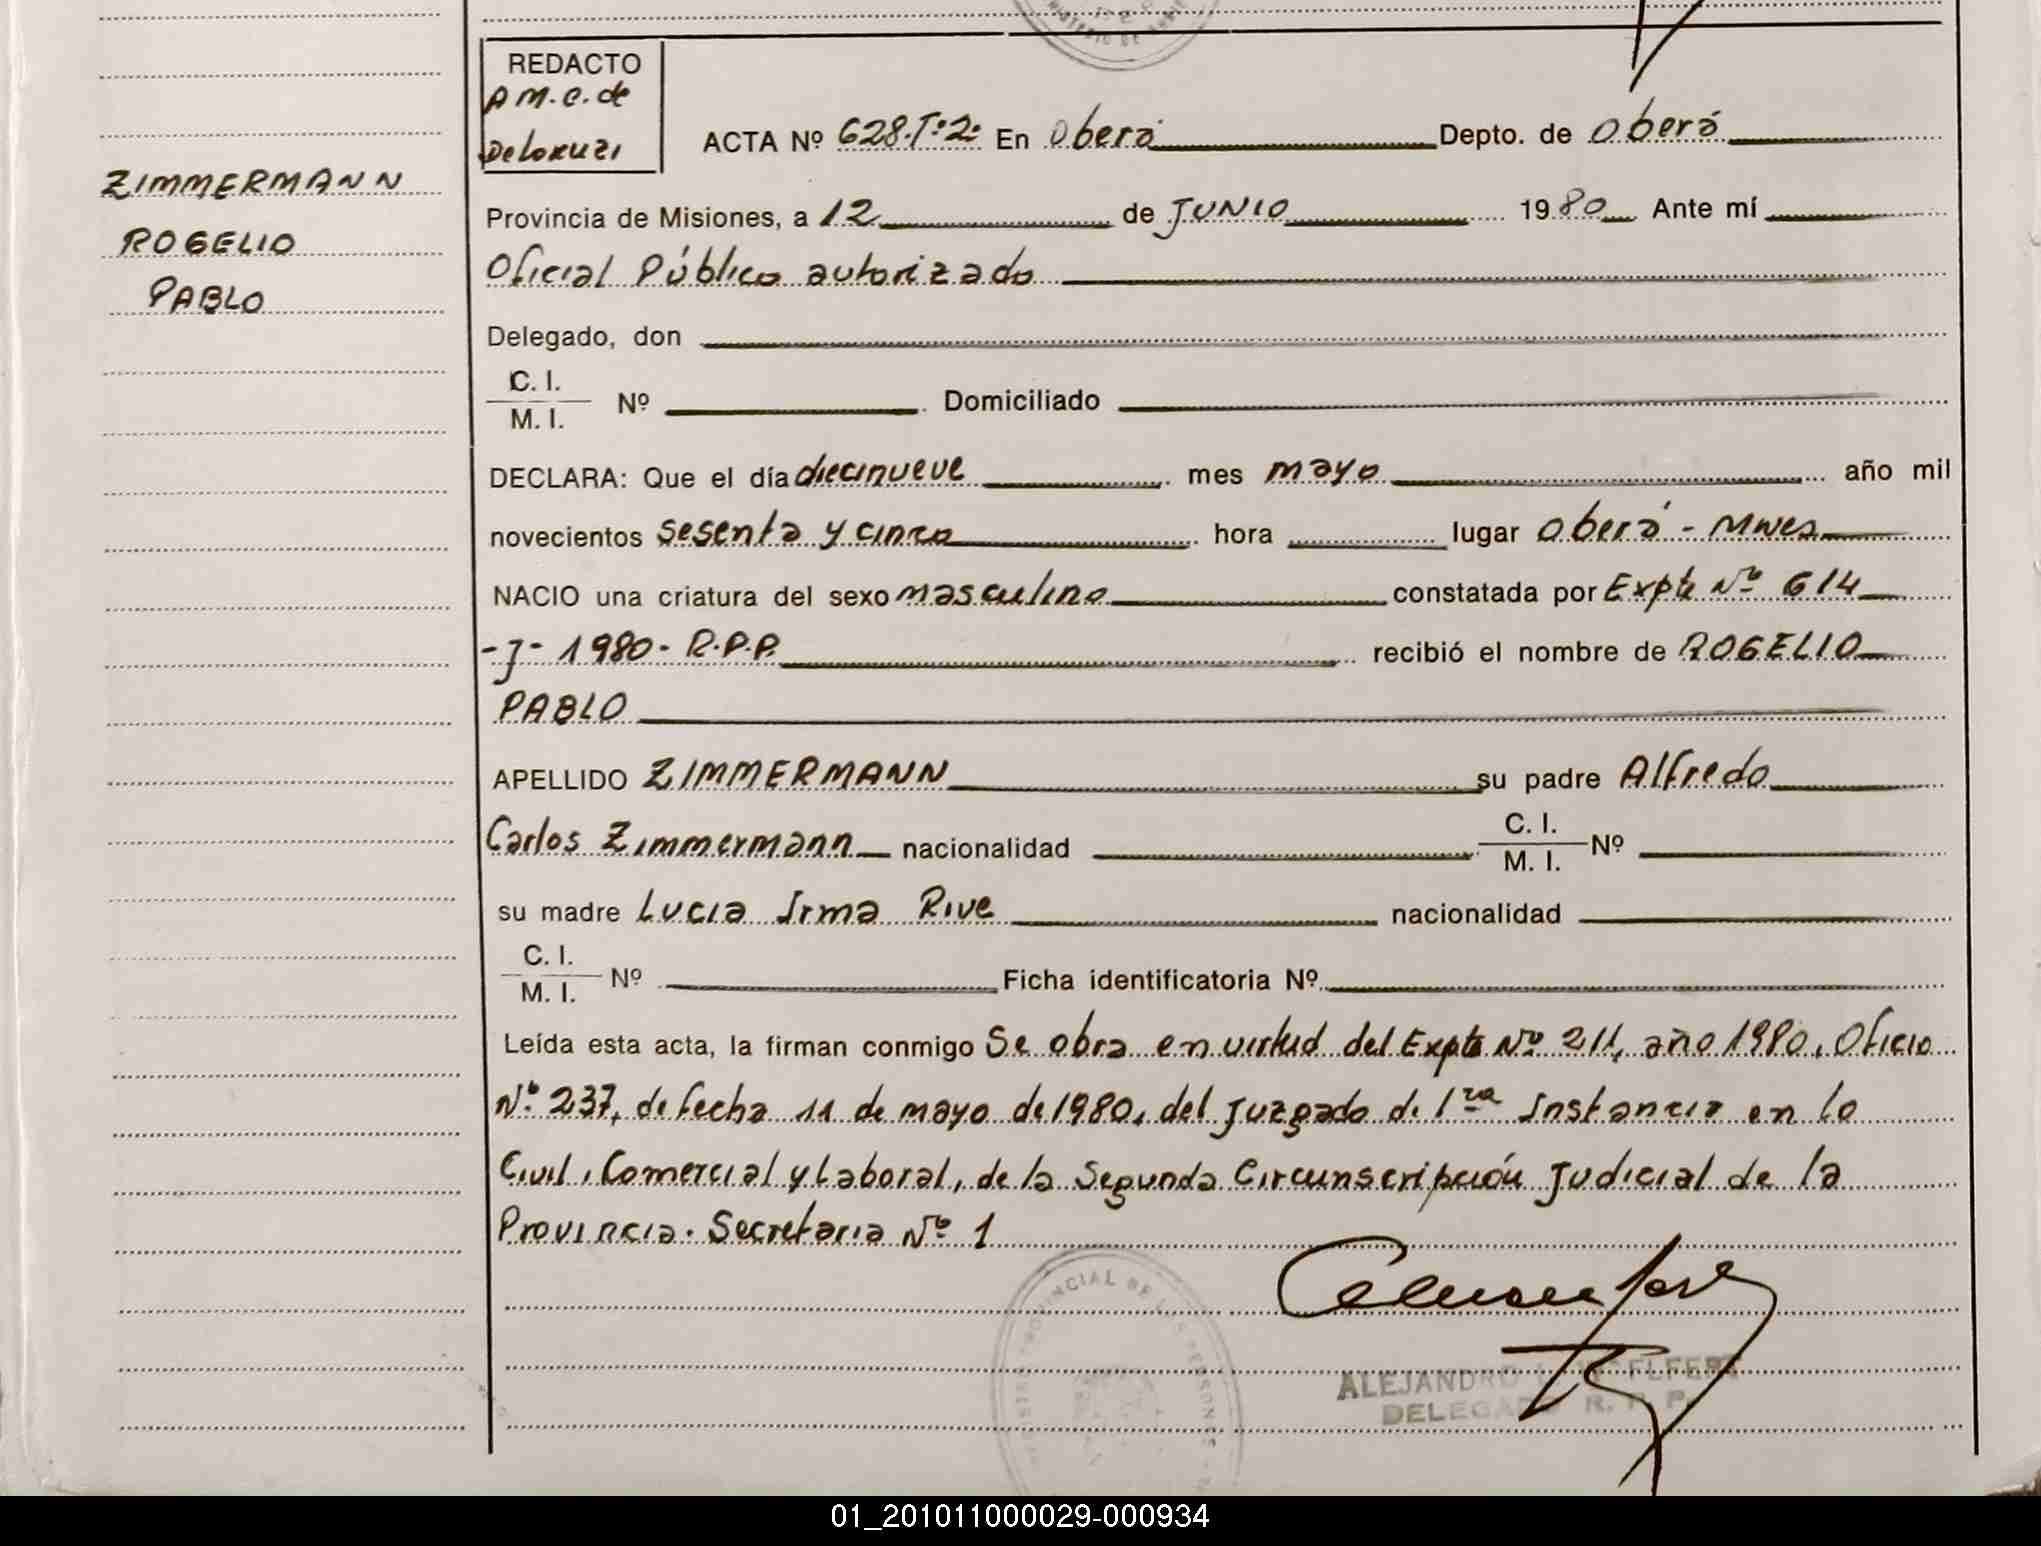 REDACTO
A M. C. de
ZIMMERMANN
ROGELIO
PABLO
ACTA Nº 628.Tº2º En Oberá Depto. de Oberá
Provincia de Misiones, a 12 de JUNIO 1980 Ante mí
Oficial Público autorizado
Delegado, don
C. I.
M. I. Nº Domiciliado
DECLARA: Que el día diecinueve mes mayo año mil
novecientos sesenta y cinco hora lugar Oberá - Mnes
NACIO una criatura del sexo masculino constatada por Expte Nº 614
-J- 1980- R.P.P. recibió el nombre de ROGELIO
PABLO
APELLIDO ZIMMERMANN su padre Alfredo
Carlos Zimmermann nacionalidad C. I. M. I. Nº
su madre Lucia Irma Rive nacionalidad
C. I.
M. I. Nº Ficha identificatoria Nº
Leída esta acta, la firman conmigo Se obra en virtud del Expte Nº 211, año 1980, Oficio
Nº 237, de fecha 11 de mayo de 1980, del Juzgado de 1ra Instancia en lo
Civil, Comercial y Laboral, de la Segunda Circunscripción Judicial de la
Provincia. Secretaria Nº 1
PROVINCIAL DE LAS PERSONAS
ALEJANDRO
DELEGADO R. P. P.
01_201011000029-000934